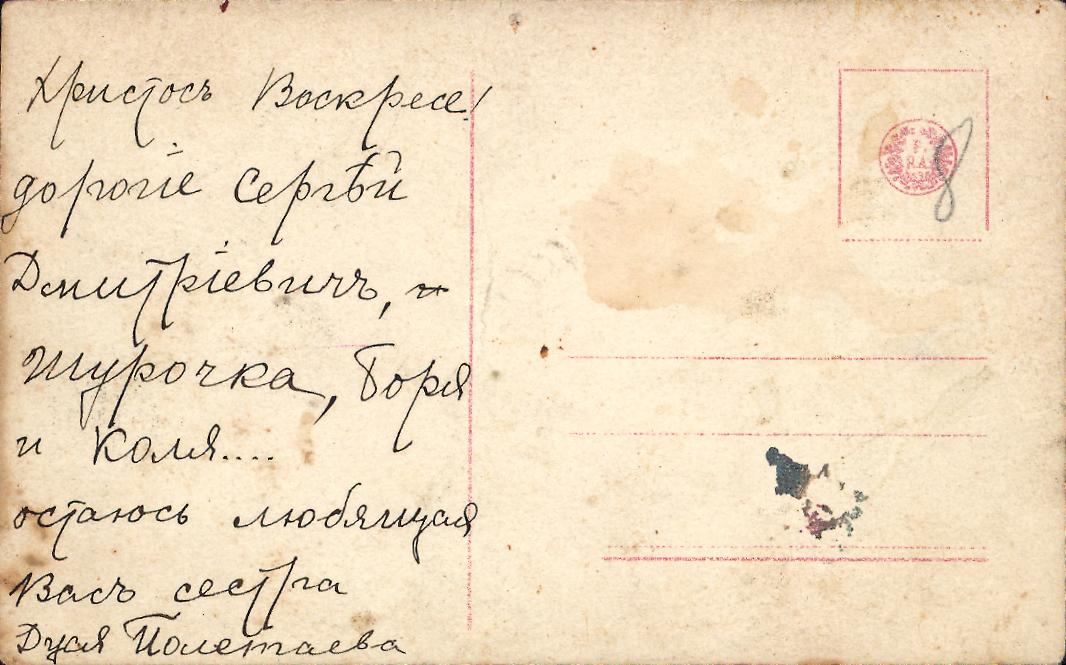 Христосъ Воскресе!
дорогіе Сергѣй
Дмитріевичъ, и
Шурочка, Боря
и Коля....
остаюсь любящая
Васъ сестра
Дуся Полетаева
8